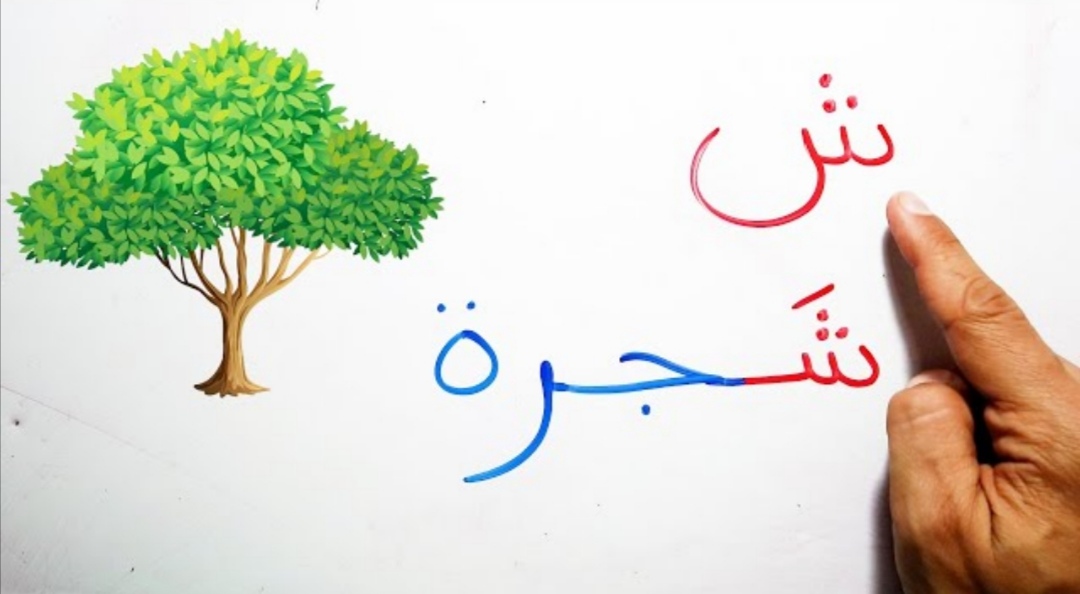 ش
شَجرة